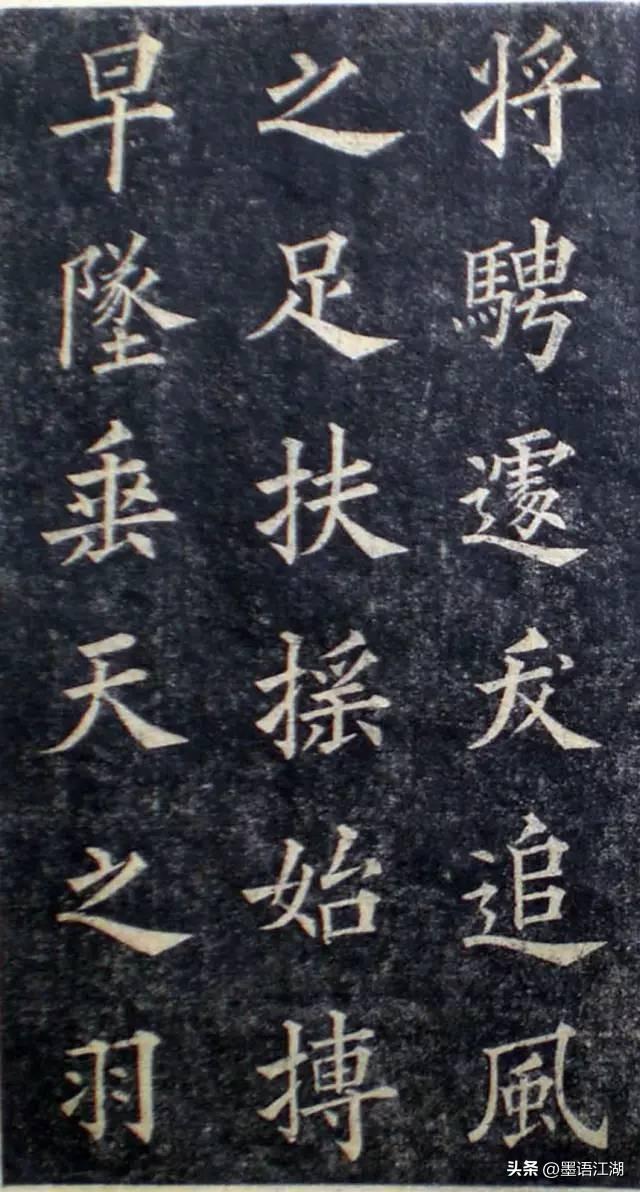 将騁遽叐追風
之足扶摇始摶
早墜垂天之羽
头条 @墨语江湖